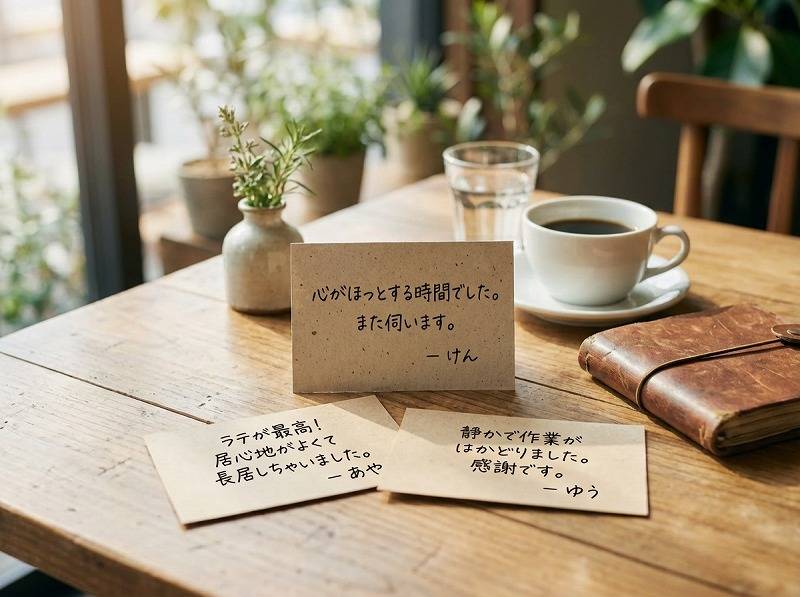 心がほっとする時間でした。
また伺います。
— けん
ラテが最高!
居心地がよくて
長居しちゃいました。
— あや
静かで作業が
はかどりました。
感謝です。
— ゆう